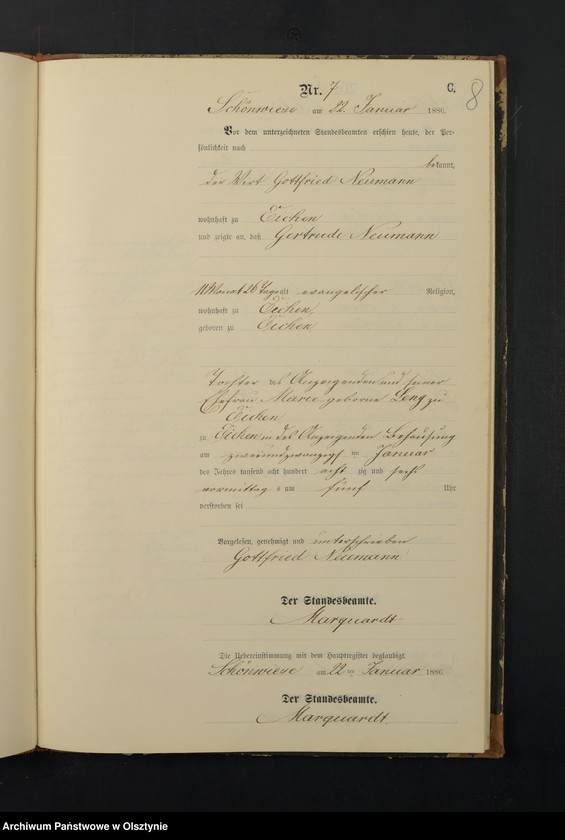 Nr. 7
C.
8
Schönwiese am 22. Januar 1886.
Vor dem unterzeichneten Standesbeamten erschien heute, der Per-
sönlichkeit nach
bekannt,
der Wirt Gottfried Neumann
wohnhaft zu Eichen
und zeigte an, daß Gertrude Neumann
11 Monat 26 Tage alt evangelischer Religion,
wohnhaft zu Eichen
geboren zu Eichen
Tochter des Anzeigenden und seiner
Ehefrau Marie geborne Leng zu
Eichen
zu Eichen in des Anzeigenden Behausung
am zweiundzwanzigsten Januar
des Jahres tausend acht hundert acht zig und sechs
vormittags um fünf Uhr
verstorben sei
Vorgelesen, genehmigt und unterschrieben
Gottfried Neumann
Der Standesbeamte.
Marquardt
Die Uebereinstimmung mit dem Hauptregister beglaubigt.
Schönwiese am 22 ten Januar 1886.
Der Standesbeamte.
Marquardt
Archiwum Państwowe w Olsztynie